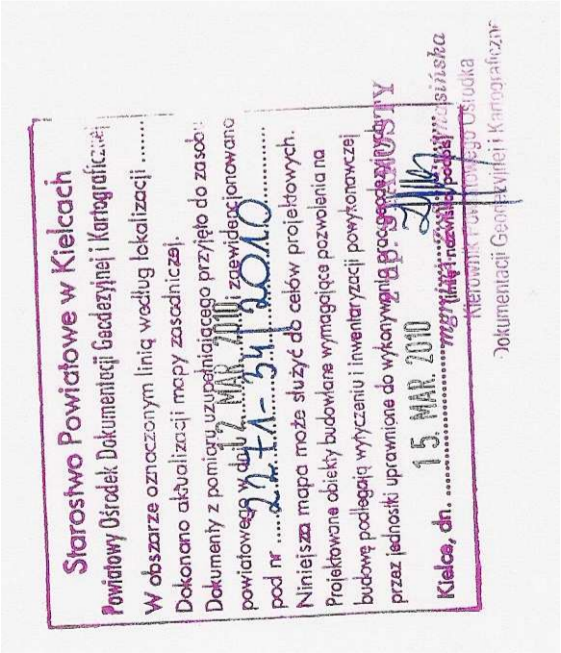 Starostwo Powiatowe w Kielcach
Powiatowy Ośrodek Dokumentacji Geodezyjnej i Kartograficznej
W obszarze oznaczonym linią według lokalizacji .......
Dokonano aktualizacji mapy zasadniczej.
Dokumenty z pomiaru uzupełniającego przyjęto do zasobu
powiatowego w dniu 12 MAR. 2010 i zaewidencjonowano
pod nr ....2271-34/2010..........
Niniejsza mapa może służyć do celów projektowych.
Projektowane obiekty budowlane wymagające pozwolenia na
budowę podlegają wytyczeniu i inwentaryzacji powykonawczej
przez jednostki uprawnione do wykonywania prac geodezyjnych
z up. STAROSTY
Kielce, dn. ....15. MAR. 2010.......... mgr inż.
(imię i nazwisko, podpis)
Kierownik Powiatowego Ośrodka
Dokumentacji Geodezyjnej i Kartograficznej